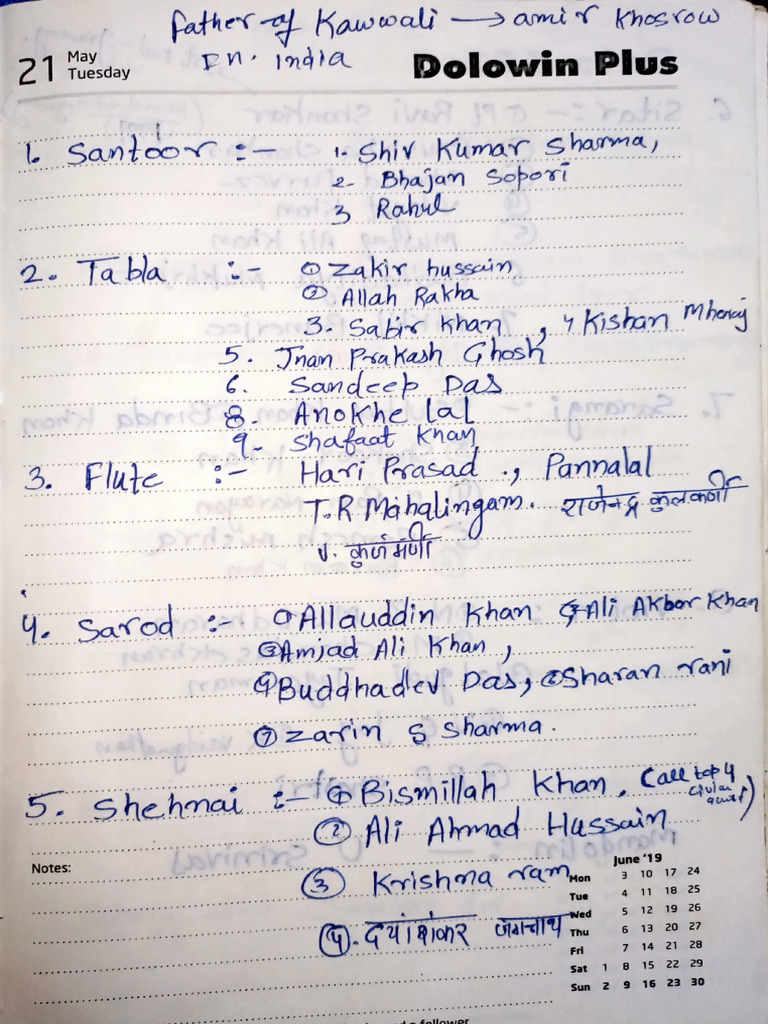 Father of Kawwali → amir Khosrow
In. India
21 May Tuesday
Dolowin Plus
1. Santoor :- 1. Shiv Kumar Sharma,
2. Bhajan Sopori
3 Rahul
2. Tabla :- ① Zakir hussain
② Allah Rakha
3. Sabir Khan , 4 Kishan Mheraj
5. Jnan Prakash Ghosh
6. Sandeep Das
8. Anokhe lal
9. Shafaat Khan
3. Flute :- Hari Prasad ., Pannalal
T.R Mahalingam. राजेन्द्र कुलकर्णी
4. Sarod :- ① Allauddin Khan & Ali Akbar Khan
③ Amjad Ali Khan ,
④ Buddhadev Das, ⑥ Sharan rani
⑦ Zarin S Sharma.
5. Shehnai :- ① Bismillah Khan. (all top 4
② Ali Ahmad Hussain
③ Krishna ram
④. दयाशंकर जगन्नाथ
Notes:
June '19
Mon 3 10 17 24
Tue 4 11 18 25
Wed 5 12 19 26
Thu 6 13 20 27
Fri 7 14 21 28
Sat 1 8 15 22 29
Sun 2 9 16 23 30
a follower